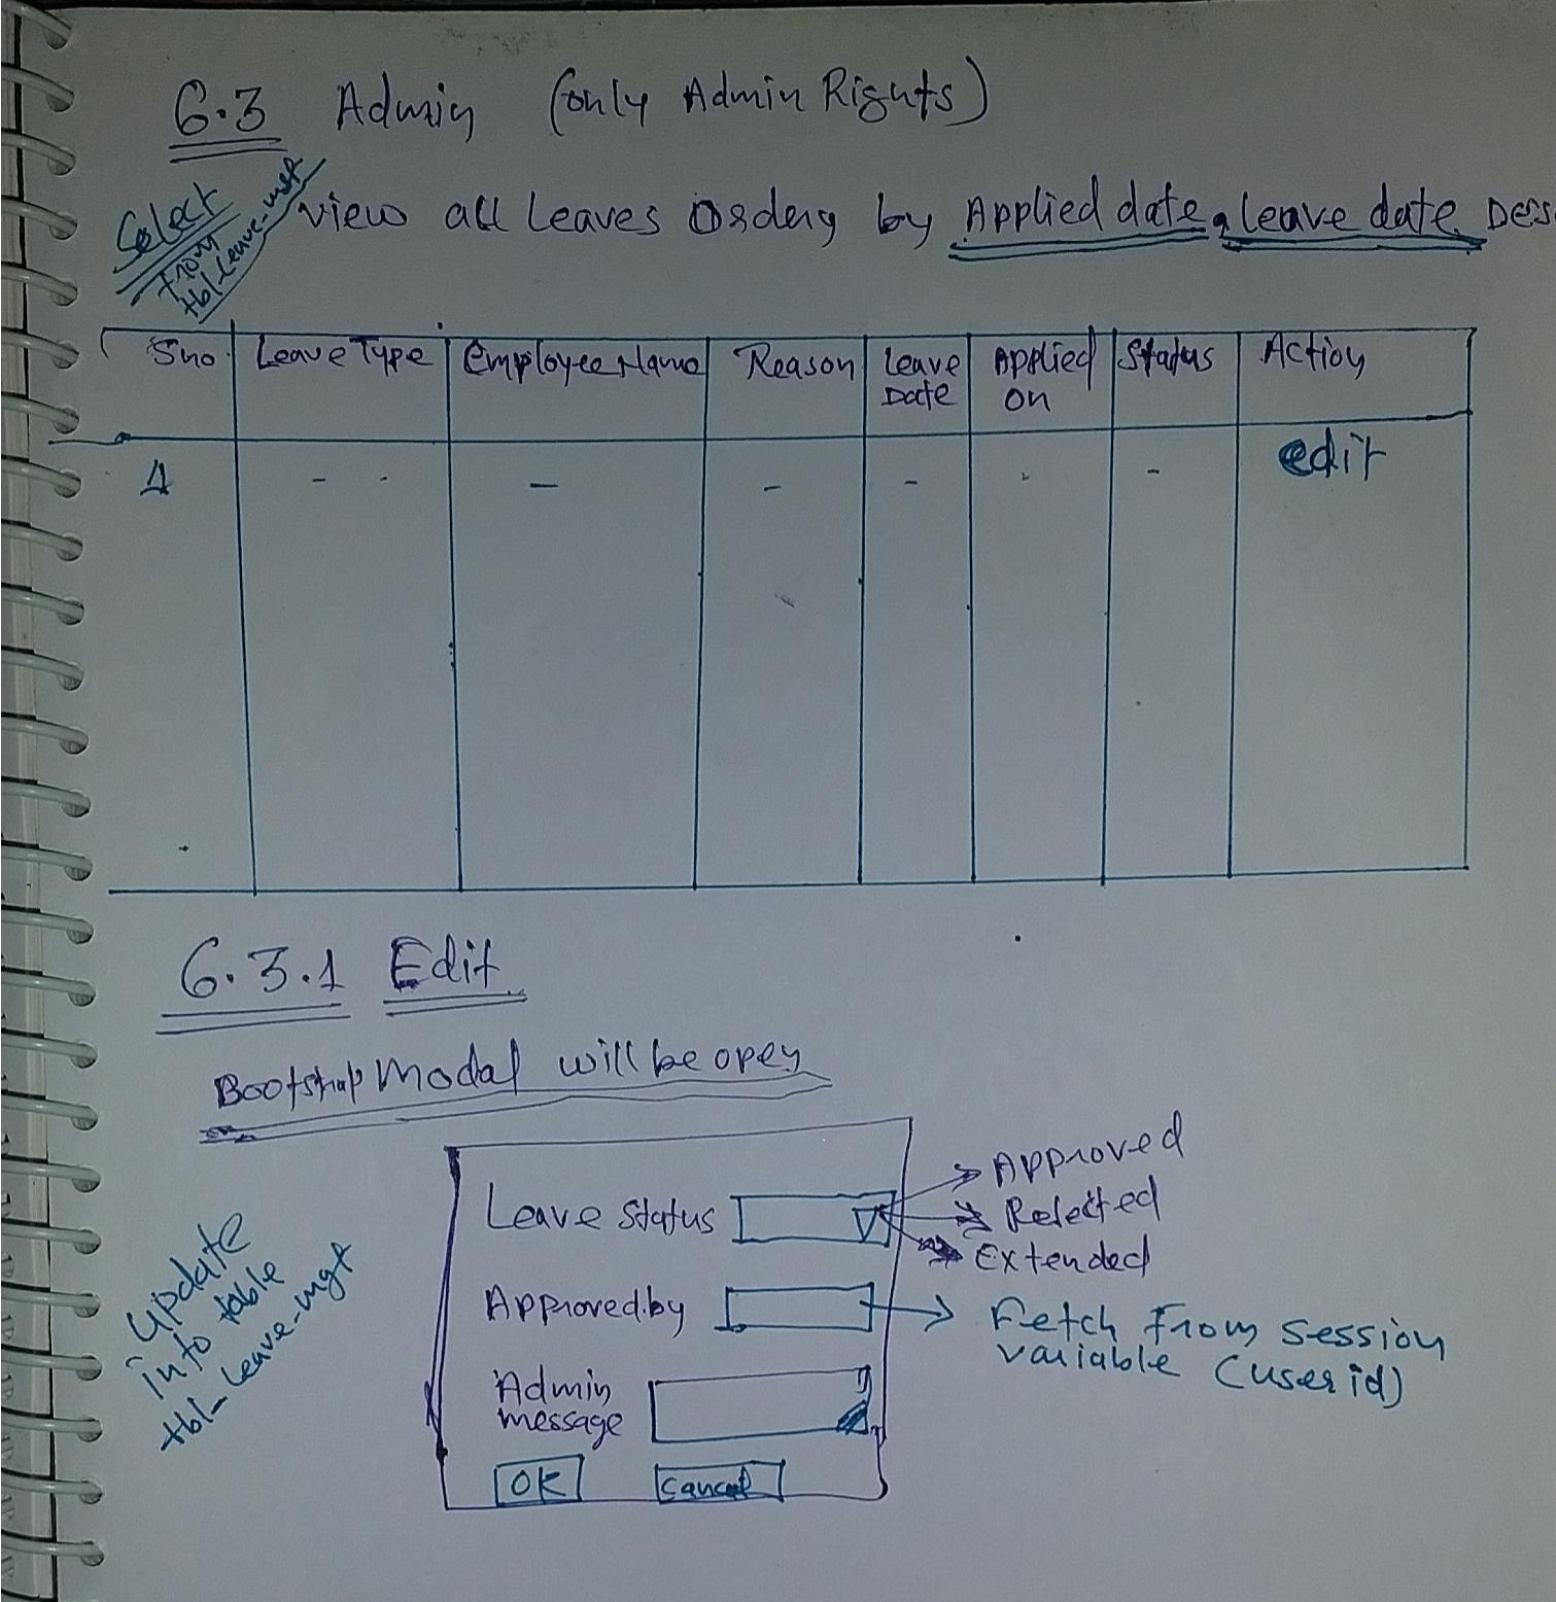 6.3 Admin (only Admin Rights)
Select
From
tbl-Leave-mgt
view all Leaves Ordeng by Applied date, leave date Des
Sno. Leave Type Employee Name Reason Leave Date Applied on Status Action
1 - - - - - - - edit
6.3.1 Edit
Bootstrap Modal will be open
Leave Status
Approved
Rejected
Extended
Approved.by
Fetch From session
variable (userid)
Admin
message
OK Cancel
update
into table
tbl-Leave-mgt